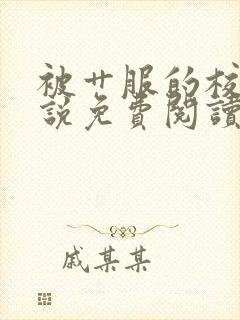 被廿服的校
說免費閱讀
戚某某